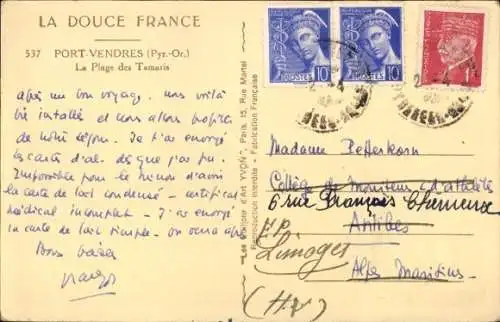 LA DOUCE FRANCE
537 PORT-VENDRES (Pyr.-Or.)
La Plage des Tamaris
après un bon voyage, nous voilà
bien installé et nous allons
de notre séjour. Je t'ai envoyé
la carte d'al. dès que j'ai pu.
Impossible pour le moment d'avoir
la carte de lait condensé - certificat
médical incomplet - J'ai envoyé
la carte de lait simple. on verra après
Bons baisers
"Les Editions d'Art YVON", Paris, 15, Rue Martel
Reproduction interdite - Fabrication Française
POSTES 10
POSTES 10
Madame
Collège de Moniteur d'athlétie
6 rue François Chenieux
Antibes
Limoges
Alpes Maritimes
(H.V)